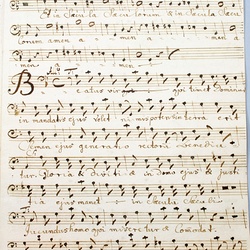 et in Saecula Saeculorum et in Saecula Saecu
lorum amen a men a men
men
Beatus vir qui timet Dominum
in mandatis ejus volet nimis potens in terra erit
Semen ejus generatio rectorum benedice
tur Gloria & divitiae in domo ejus & justi
tia ejus manet in Saecula Saeculi
jucundus homo qui miseretur & Comodat